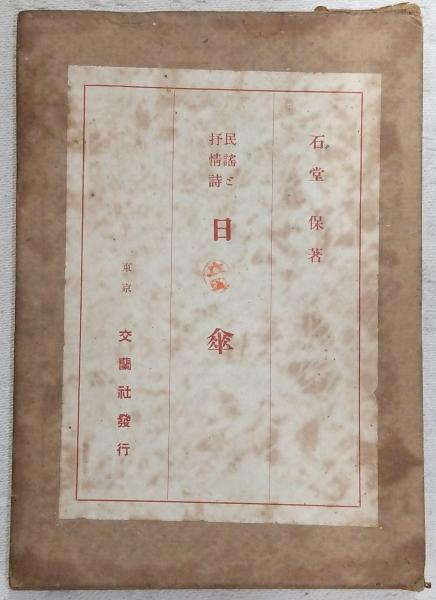 石堂保著
民謡と
抒情詩
日傘
東京
交蘭社發行